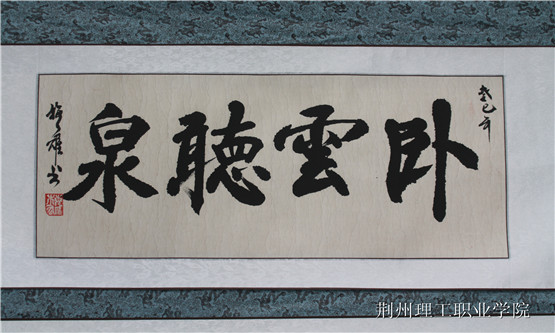 癸巳年
卧雲聽泉
荆州理工职业学院